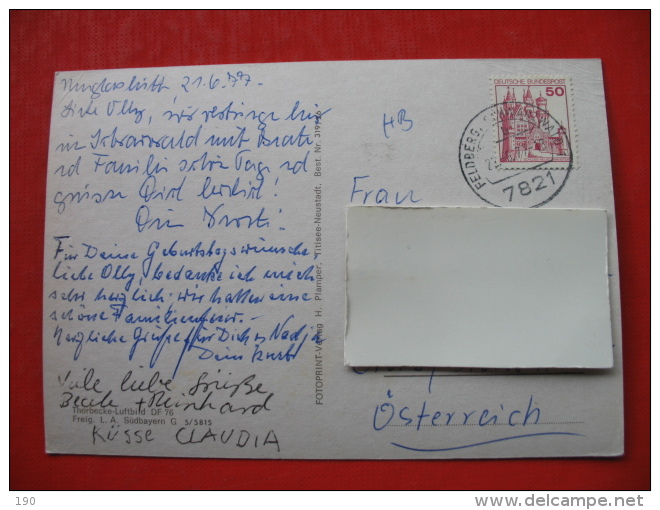 21.6.77.
Liebe Olly, wir verbringen hier
im Schwarzwald mit Beate
und Familie schöne Tage und
grüssen Dich herzlich!
Für Deine Geburtstagswünsche
liebe Olly, bedanke ich mich
sehr herzlich. wir hatten eine
schöne Familienfeier. –
Herzliche Grüße für Dich u. Nadja
Dein Kurt
Viele liebe Grüße
Beate + Reinhard
Thorbecke-Luftbild DF 76
Freig. L. A. Südbayern G 5/5815
KÜSSE CLAUDIA
FOTOPRINT-Verlag H. Plamper, Titisee-Neustadt, Best. Nr.
HB
DEUTSCHE BUNDESPOST
50
FELDBERG
7821
Frau
Österreich
190
delcampe.net